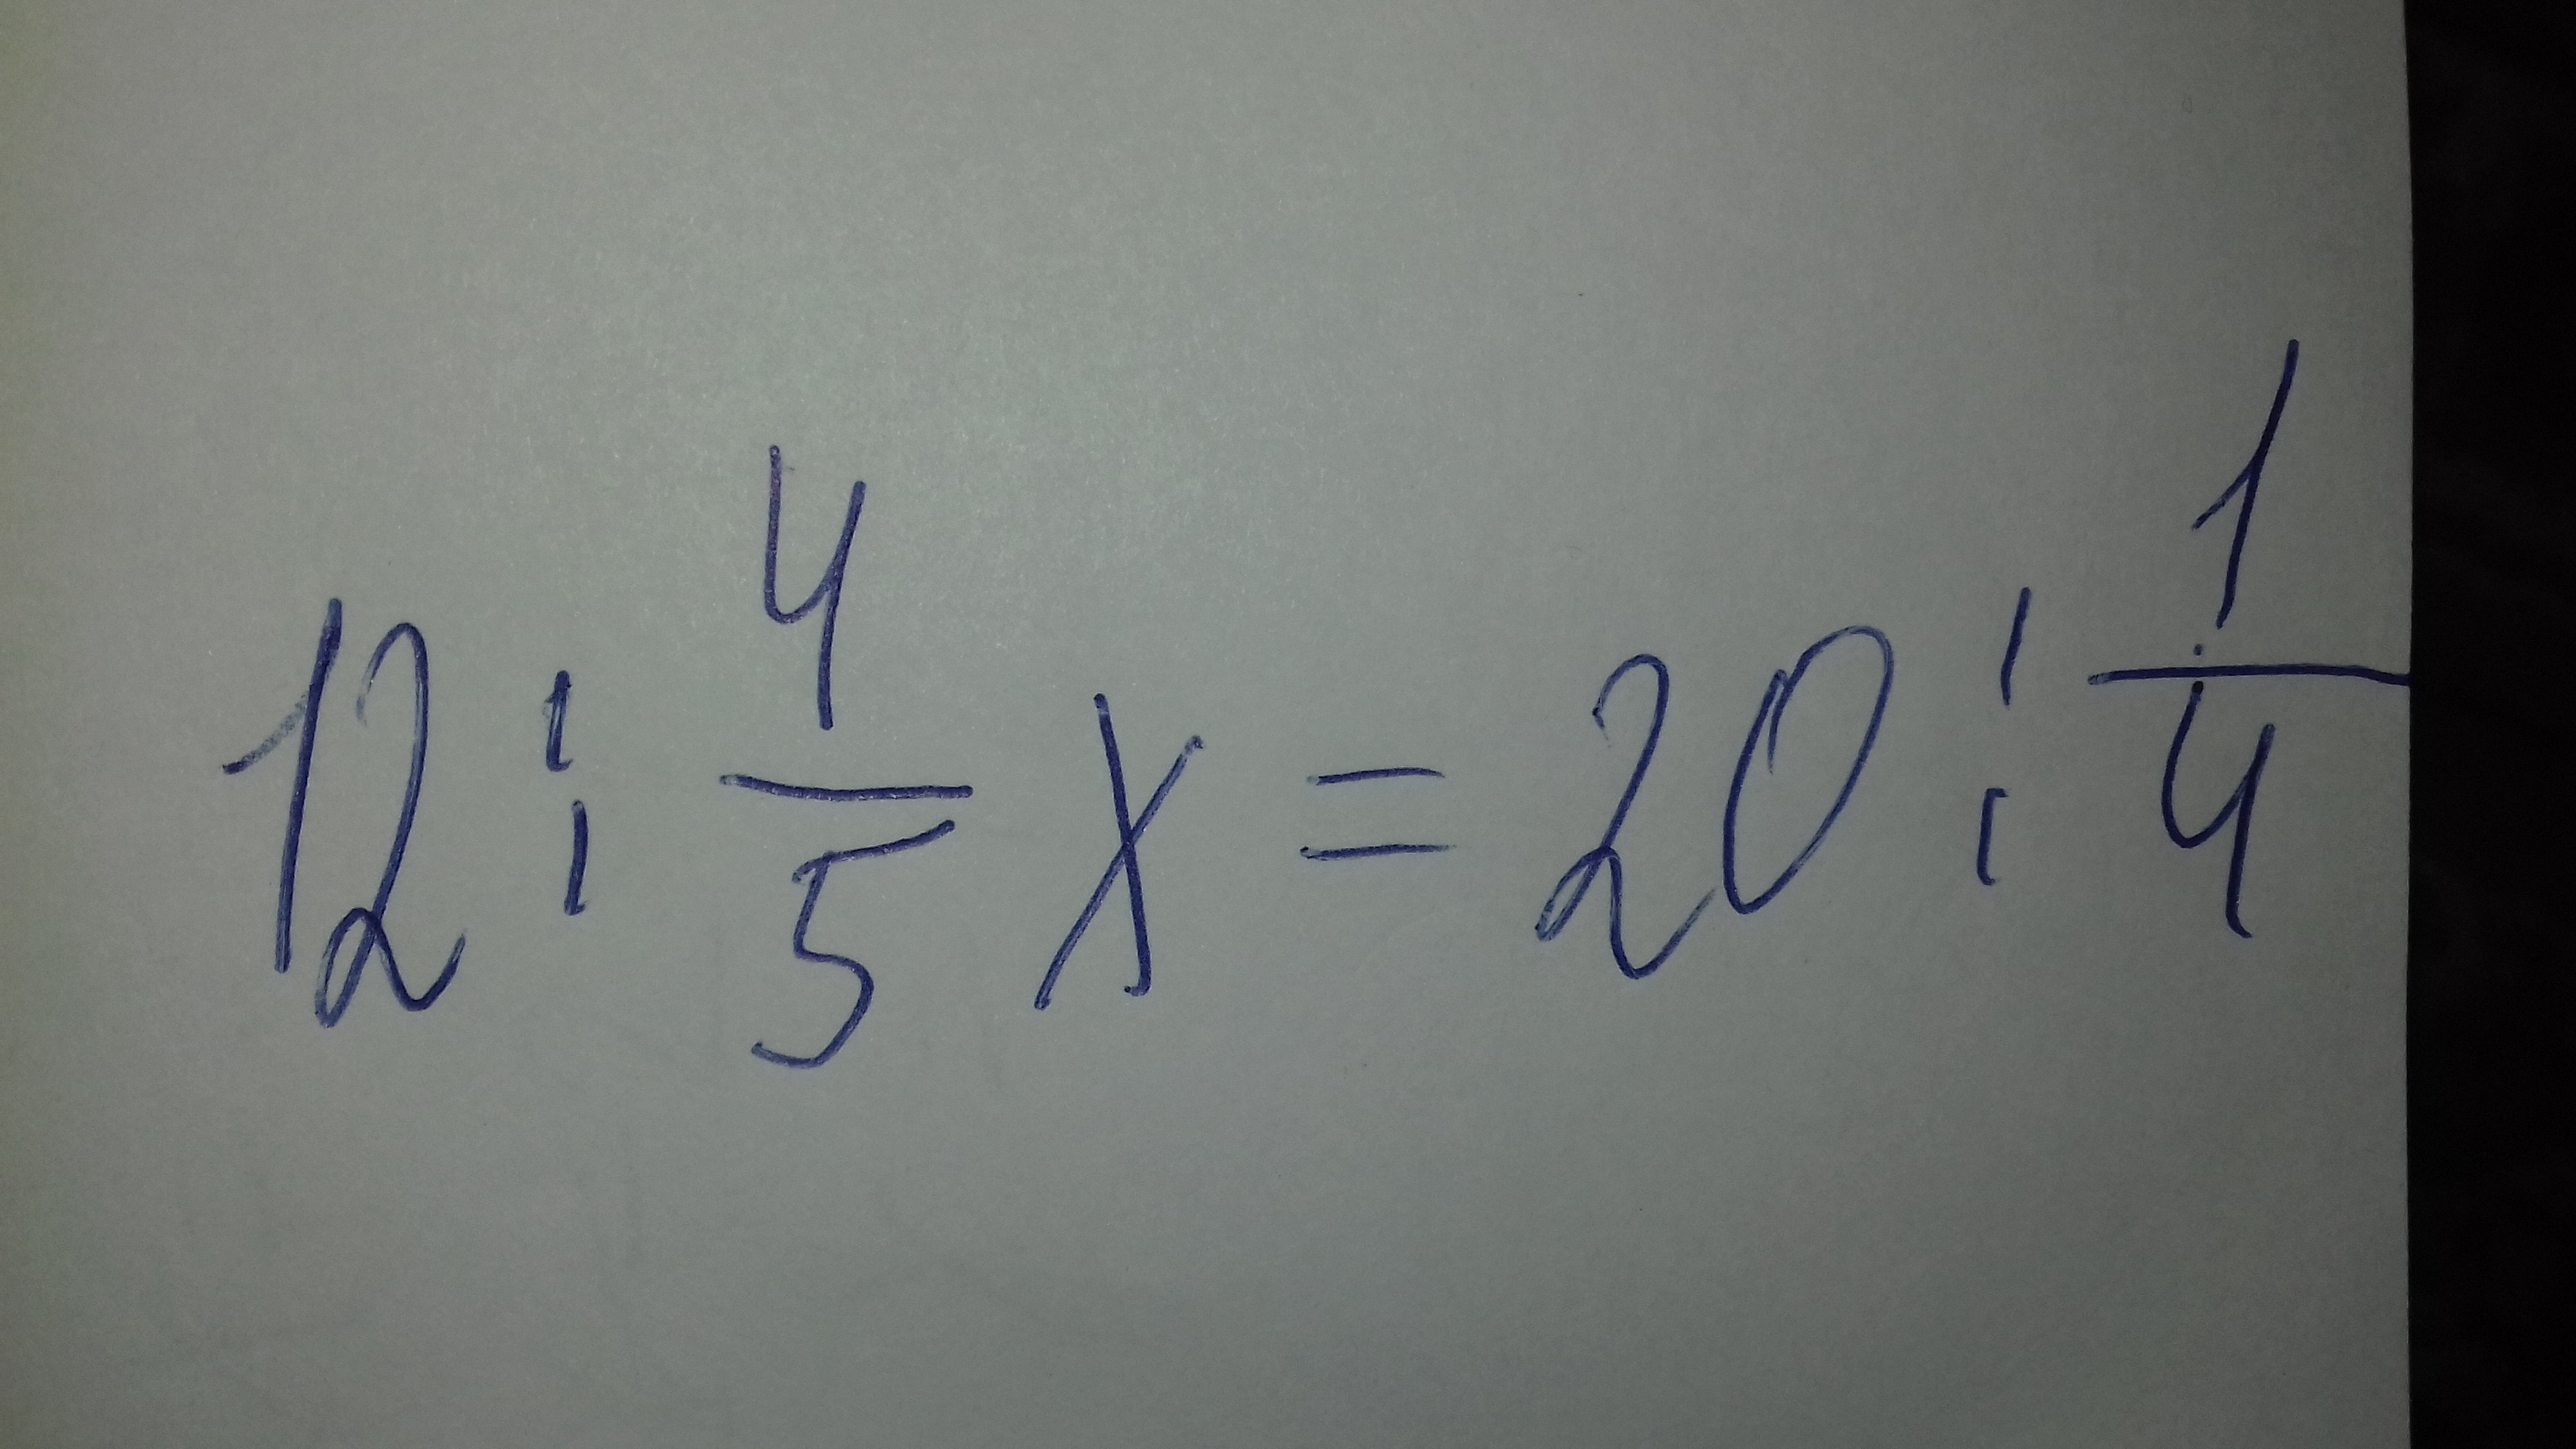 12 : 4/5 x = 20 : 1/4